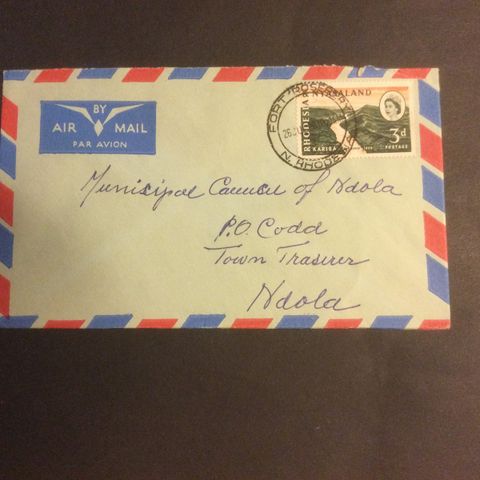 BY
AIR MAIL
PAR AVION
FORT ROSEBERY
N. RHODESIA
RHODESIA & NYASALAND
KARIBA
3d
POSTAGE
Municipal Council of Ndola
P.O. Codd
Town Traserer
Ndola